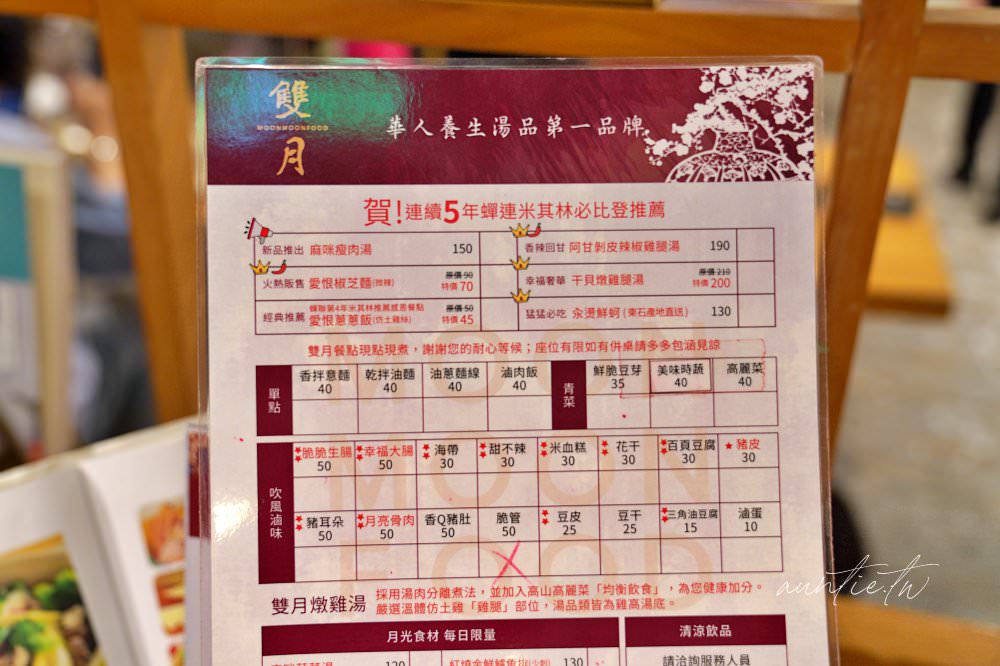 雙月
MOONMOONFOOD
華人養生湯品第一品牌
賀!連續5年蟬連米其林必比登推薦
新品推出 麻咪瘦肉湯 150
香辣回甘 阿甘剝皮辣椒雞腿湯 190
火熱販售 愛恨椒芝麵(微辣) 原價90 特價70
幸福奢華 干貝燉雞腿湯 原價210 特價200
經典推薦 蟬聯第4年米其林推薦感恩餐點 愛恨蔥蔥飯(仿土雞絲) 原價50 特價45
猛猛必吃 汆燙鮮蚵(東石產地直送) 130
雙月餐點現點現煮，謝謝您的耐心等候；座位有限如有併桌請多多包涵見諒
單點 香拌意麵 乾拌油麵 油蔥麵線 滷肉飯 青菜 鮮脆豆芽 美味時蔬 高麗菜
40 40 40 40 35 40 40
吹風滷味
脆脆生腸 幸福大腸 海帶 甜不辣 米血糕 花干 百頁豆腐 豬皮
50 50 30 30 30 30 30 30
豬耳朵 月亮骨肉 香Q豬肚 脆管 豆皮 豆干 三角油豆腐 滷蛋
50 50 50 50 25 25 15 10
MOON
MOON
FOOD
雙月燉雞湯 採用湯肉分離煮法，並加入高山高麗菜「均衡飲食」，為您健康加分。
嚴選溫體仿土雞「雞腿」部位，湯品類皆為雞高湯底。
月光食材 每日限量 清涼飲品
120 紅燒金鮮鱸魚排(少刺) 130 請洽詢服務人員
auntie.tw